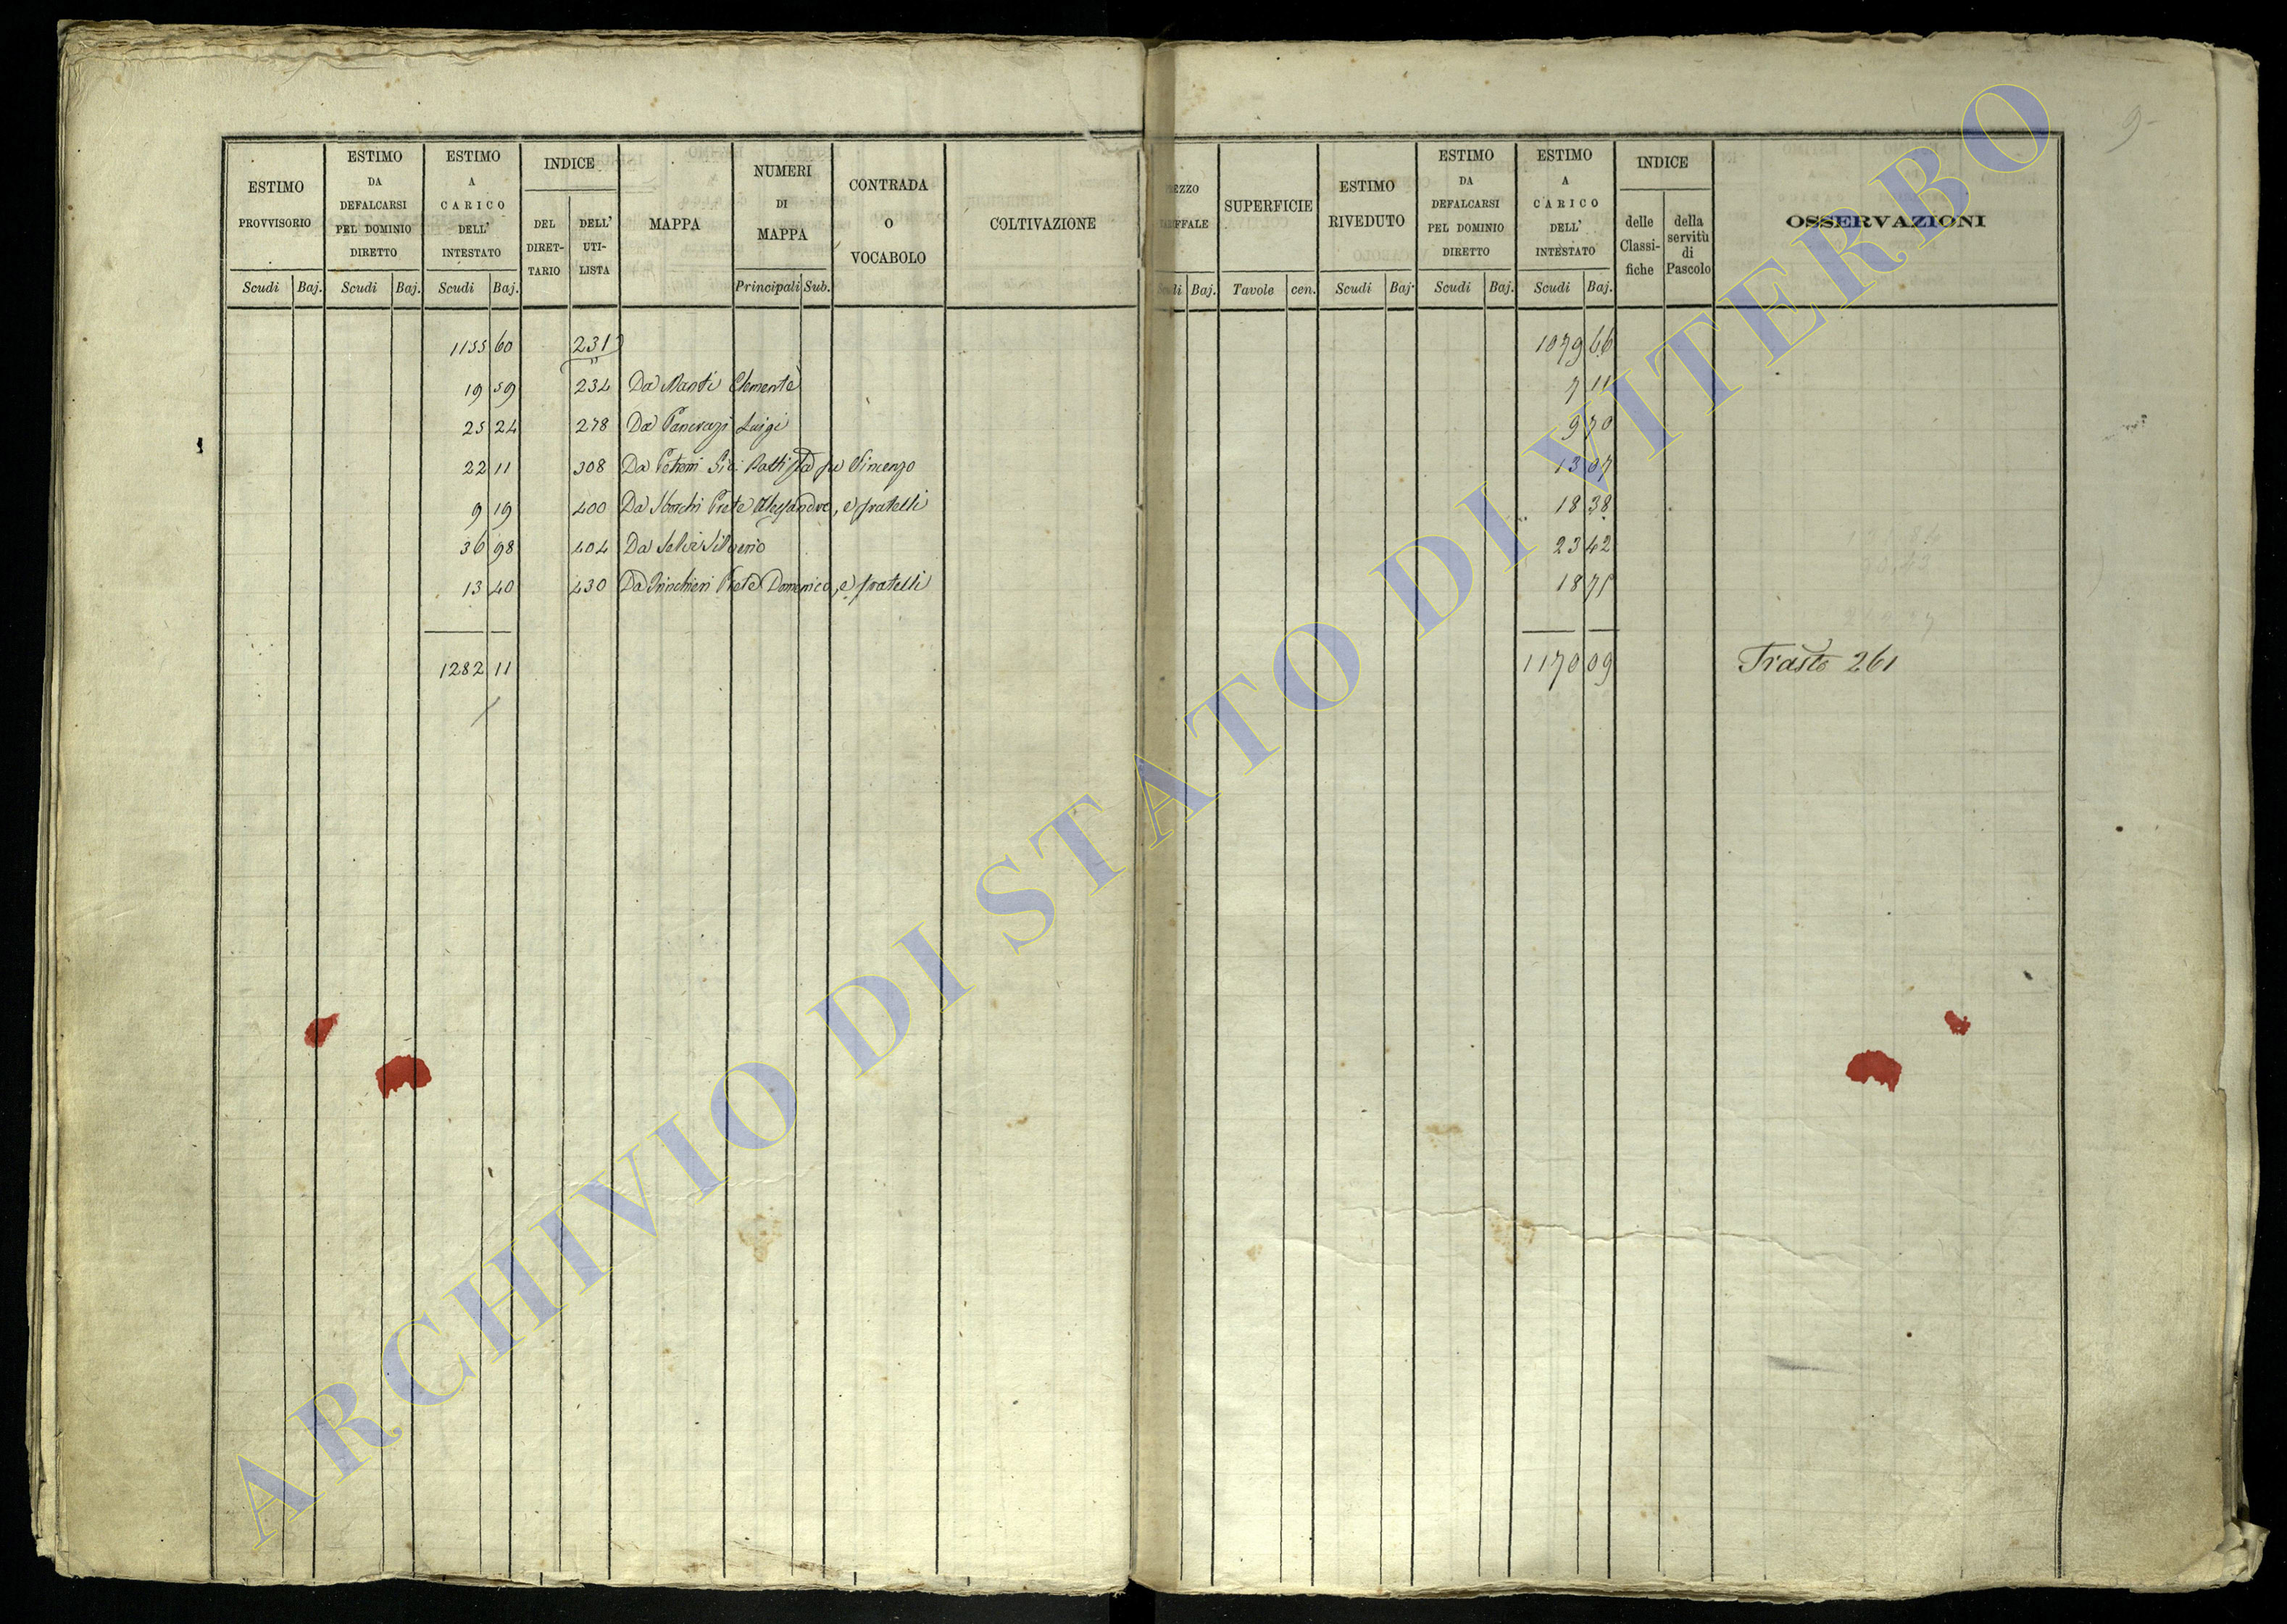 9
ESTIMO PROVVISORIO
Scudi Baj.
ESTIMO DA DEFALCARSI PEL DOMINIO DIRETTO
Scudi Baj.
ESTIMO A CARICO DELL' INTESTATO
Scudi Baj.
INDICE
DEL DIRET-TARIO
DELL' UTI-LISTA
MAPPA
NUMERI DI MAPPA
Principali Sub.
CONTRADA O VOCABOLO
COLTIVAZIONE
Baj.
SUPERFICIE
Tavole cen.
ESTIMO RIVEDUTO
Scudi Baj.
ESTIMO DA DEFALCARSI PEL DOMINIO DIRETTO
Scudi Baj.
ESTIMO A CARICO DELL' INTESTATO
Scudi Baj.
INDICE
delle Classi-fiche
della servitù di Pascolo
OSSERVAZIONI
1155 60 231 1079 66
19 59 234 Da Clemente 7 11
25 24 278 Da Pancrazi Luigi 9 70
22 11 308 Da Petroni Gio: Battista fu Vincenzo 13 07
9 19 400 Da Prete Alessandro, e fratelli 18 38
36 98 404 Da 23 42
13 40 430 Da Prete Domenico, e fratelli 18 75
1282 11 1170 09 Trasto 261
ARCHIVIO DI STATO DI VITERBO